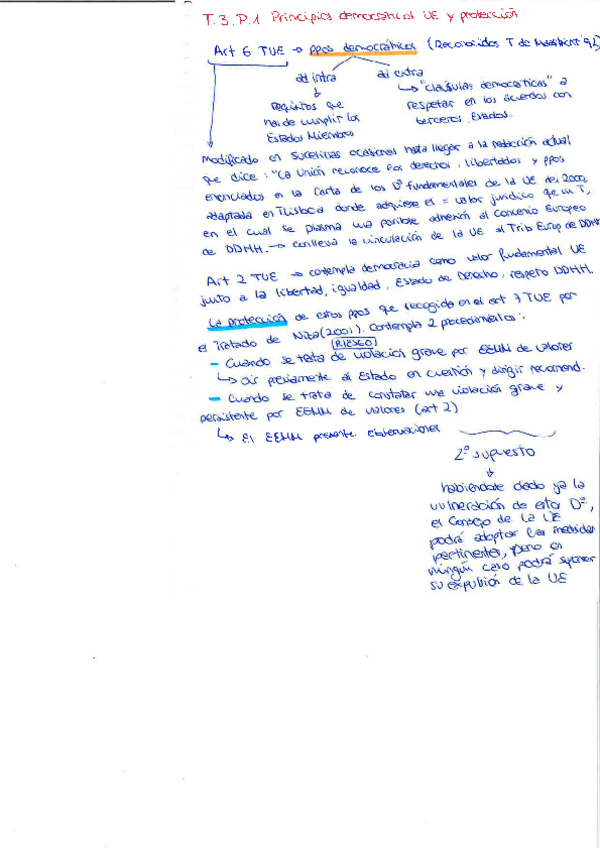 T.3. P.1 Principios democráticos UE y protección
Art 6 TUE → ppos democráticos (Reconocidos T de Maastricht 92)
ad intra
ad extra
requisitos que
han de cumplir los
Estados Miembros
"cláusulas democráticas" a
respetar en los acuerdos con
terceros Estados.
modificado en sucesivas ocasiones hasta llegar a la redacción actual
que dice: "La Unión reconoce los derechos, libertades y ppos
enunciados en la Carta de los Dº fundamentales de la UE del 2000,
adaptada en Lisboa donde adquiere el = valor jurídico que un T,
en el cual se plasma una posible adhesión al Convenio Europeo
de DDHH. → conlleva la vinculación de la UE al Trib Europ de DDHH
Art 2 TUE → contempla democracia como valor fundamental UE
junto a la libertad, igualdad, Estado de Derecho, respeto DDHH.
La protección de estos ppos que recogida en el art 7 TUE por
el Tratado de Niza (2001). Contempla 2 procedimientos:
RIESGO
- Cuando se trata de violación grave por EEMM de valores
↳ oír previamente al Estado en cuestión y dirigir recomend.
- Cuando se trata de constatar una violación grave y
persistente por EEMM de valores (art 2)
↳ El EEMM presente observaciones
2º supuesto
habiéndose dado ya la
vulneración de estos Dº,
el Consejo de la UE
podrá adoptar las medidas
pertinentes, pero en
ningún caso podrá suponer
su expulsión de la UE